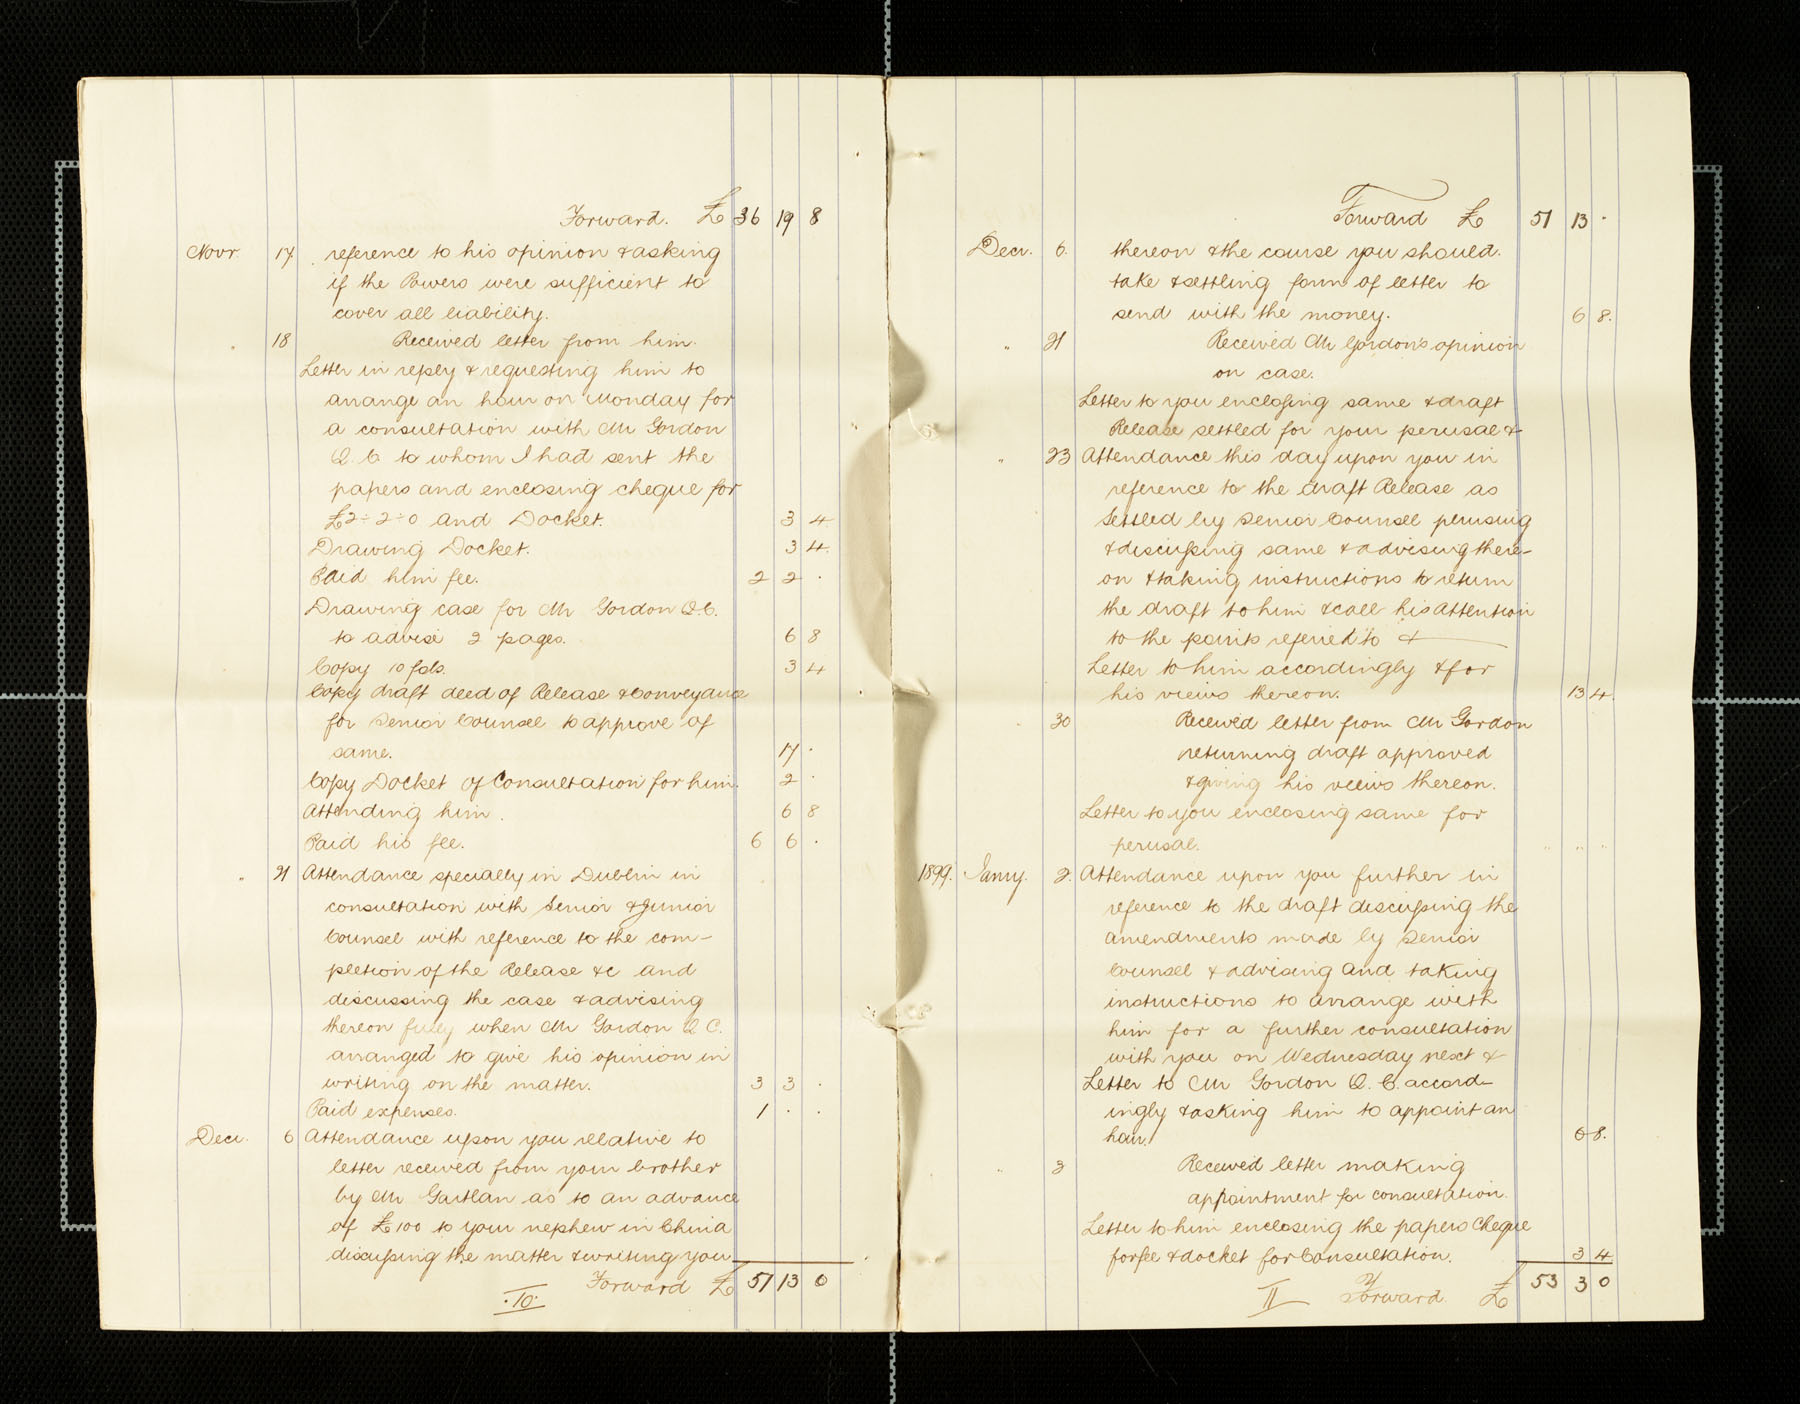 Forward. £ 36 19 8
Novr. 17 reference to his opinion & asking
if the Powers were sufficient to
cover all liability.
" 18 Received letter from him.
Letter in reply & requesting him to
arrange an hour on Monday for
a consultation with Mr Gordon
Q.C to whom I had sent the
papers and enclosing cheque for
£2-2-0 and Docket. 3 4
Drawing Docket. 3 4
Paid him fee. 2 2 .
Drawing case for Mr Gordon Q.C.
to advise 2 pages. 6 8
Copy 10 fols. 3 4
Copy draft deed of Release & Conveyance
for Senior Counsel to approve of
same. 17 .
Copy Docket of Consultation for him. 2 .
Attending him. 6 8
Paid his fee. 6 6 .
" 21 Attendance specially in Dublin in
consultation with Senior & Junior
Counsel with reference to the com-
pletion of the Release &c and
discussing the case & advising
thereon fully when Mr Gordon Q C.
arranged to give his opinion in
writing on the matter. 3 3 .
Paid expenses. 1 . .
Decr. 6 Attendance upon you relative to
letter received from your brother
by Mr Gartlan as to an advance
of £100 to your nephew in China
discussing the matter & writing you
Forward £ 51 13 0
.10.
Forward £ 51 13 .
Decr. 6. thereon & the course you should.
take & settling form of letter to
send with the money. 6 8.
" 21 Received Mr Gordon's opinion
on case.
Letter to you enclosing same & draft
Release settled for your perusal &
" 23 Attendance this day upon you in
reference to the draft Release as
settled by Senior Counsel perusing
& discussing same & advising there-
on & taking instructions to return
the draft to him & call his attention
to the points referred to &
Letter to him accordingly & for
his views thereon. 13 4.
30 Received letter from Mr Gordon
returning draft approved
& giving his views thereon.
Letter to you enclosing same for
perusal. " " "
1899. Janry. 2. Attendance upon you further in
reference to the draft discussing the
amendments made by Senior
Counsel & advising and taking
instructions to arrange with
him for a further consultation
with you on Wednesday next &
Letter to Mr Gordon Q.C. accord-
ingly & asking him to appoint an
hour. 6 8.
" 3 Received letter making
appointment for consultation.
Letter to him enclosing the papers Cheque
for fee & docket for Consultation. 3 4
11 Forward £ 53 3 0